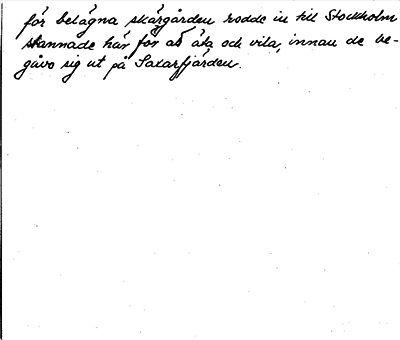 för belägna skärgården rodde in till Stockholm
stannade här för att äta och vila, innan de be-
gåvo sig ut på Saxarfjärden.